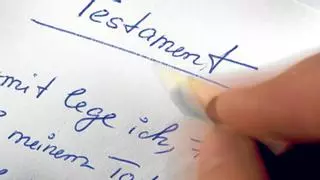 Testament
mit lege ich,
meinem To